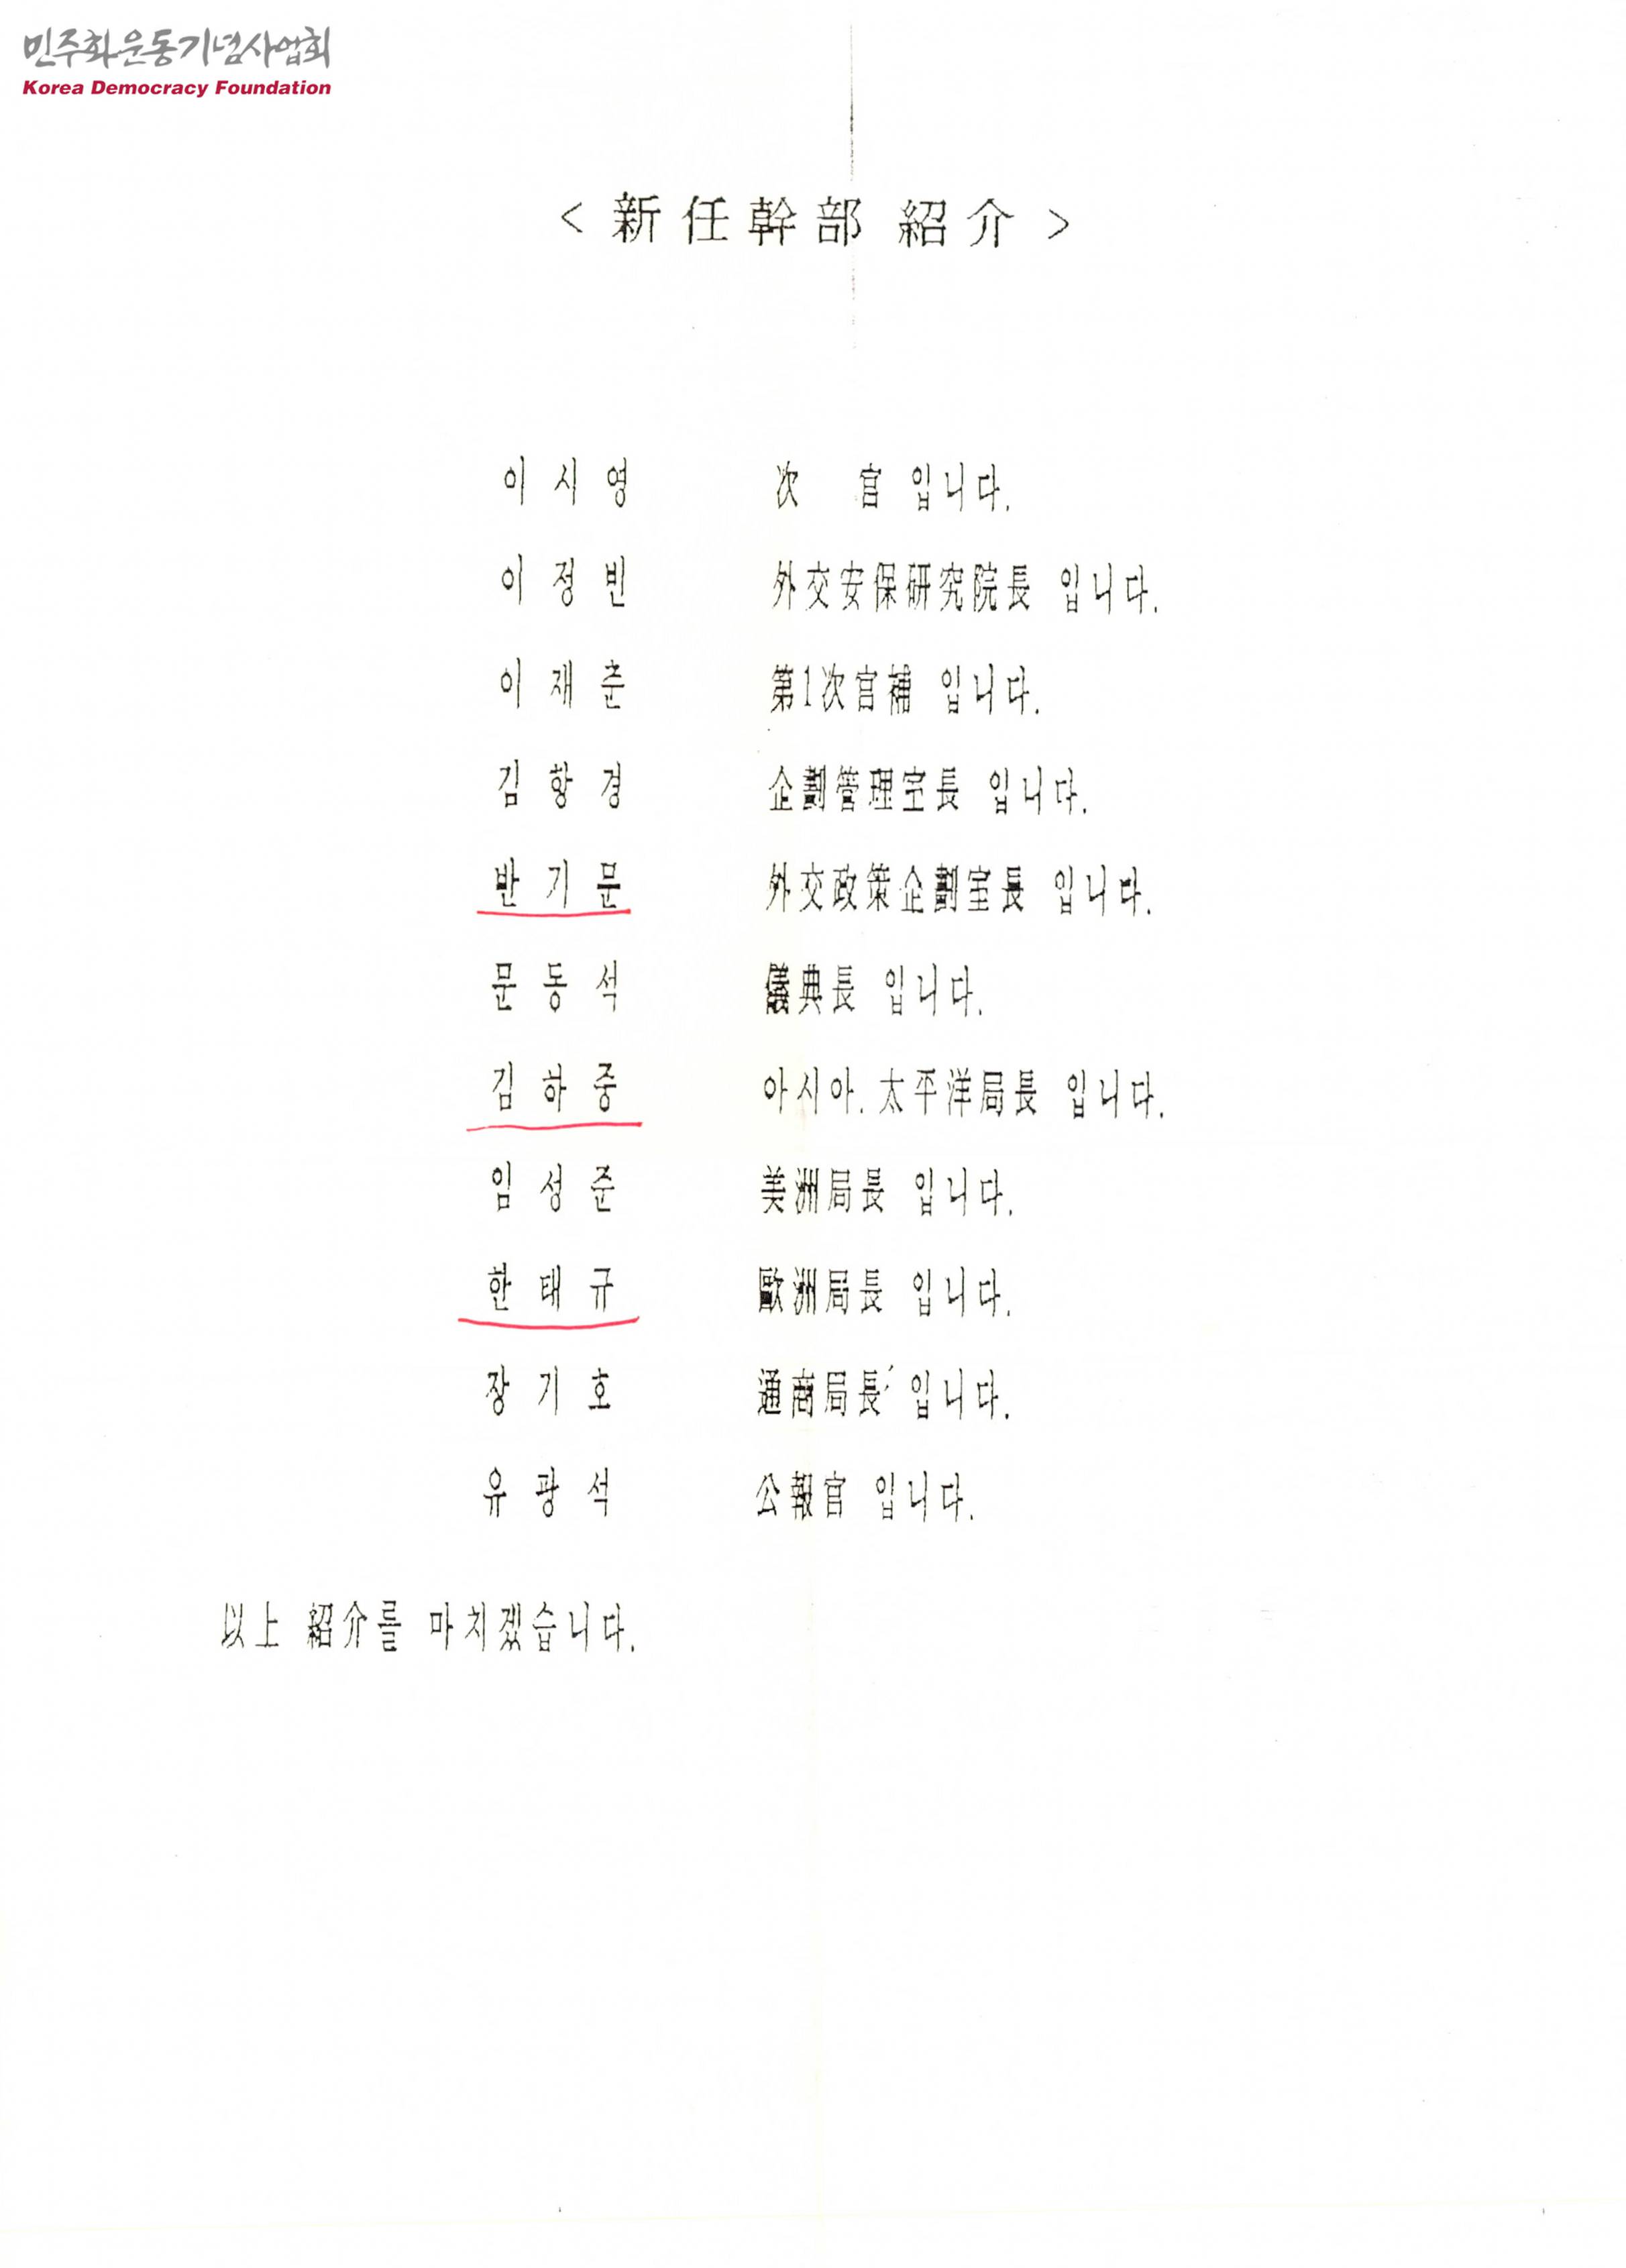 민주화운동기념사업회
Korea Democracy Foundation
< 新任幹部 紹介 >
이시영 次 官 입니다.
이정빈 外交安保硏究院長 입니다.
이재춘 第1次官補 입니다.
김항경 企劃管理室長 입니다.
반기문 外交政策企劃室長 입니다.
문동석 儀典長 입니다.
김하중 아시아.太平洋局長 입니다.
임성준 美洲局長 입니다.
한태규 歐洲局長 입니다.
장기호 通商局長 입니다.
유광석 公報官 입니다.
以上 紹介를 마치겠습니다.